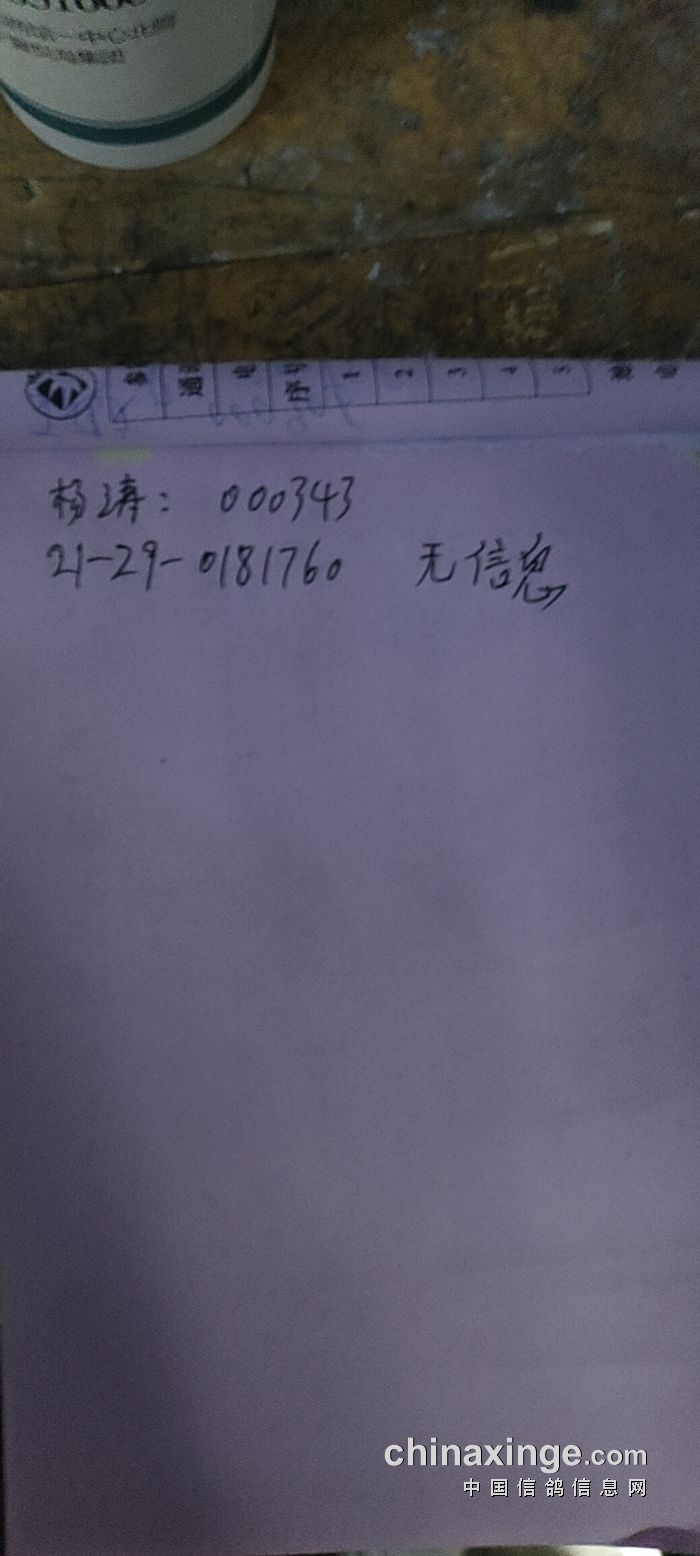 通
序号
1
2
3
4
5
杨涛: 000343
21-29-0181760 无信息
chinaxinge.com
中国信鸽信息网